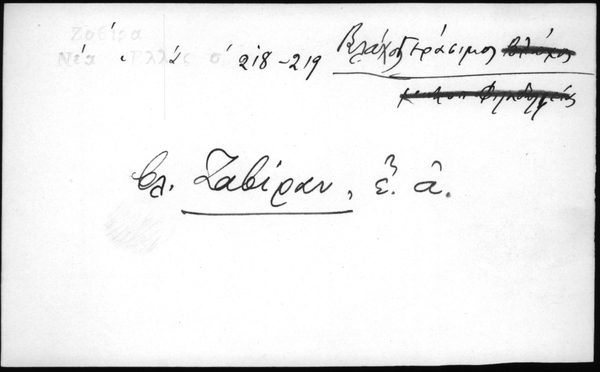 Ζαβίρα
Νέα Ἑλλάς σ 218-219 Βλάχος Γεράσιμος
βλ. Ζαβίραν, ἔ. ἀ.